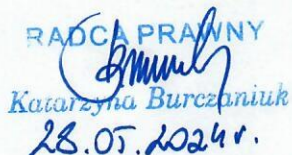 RADCA PRAWNY
Katarzyna Burczaniuk
28.05.2024r.